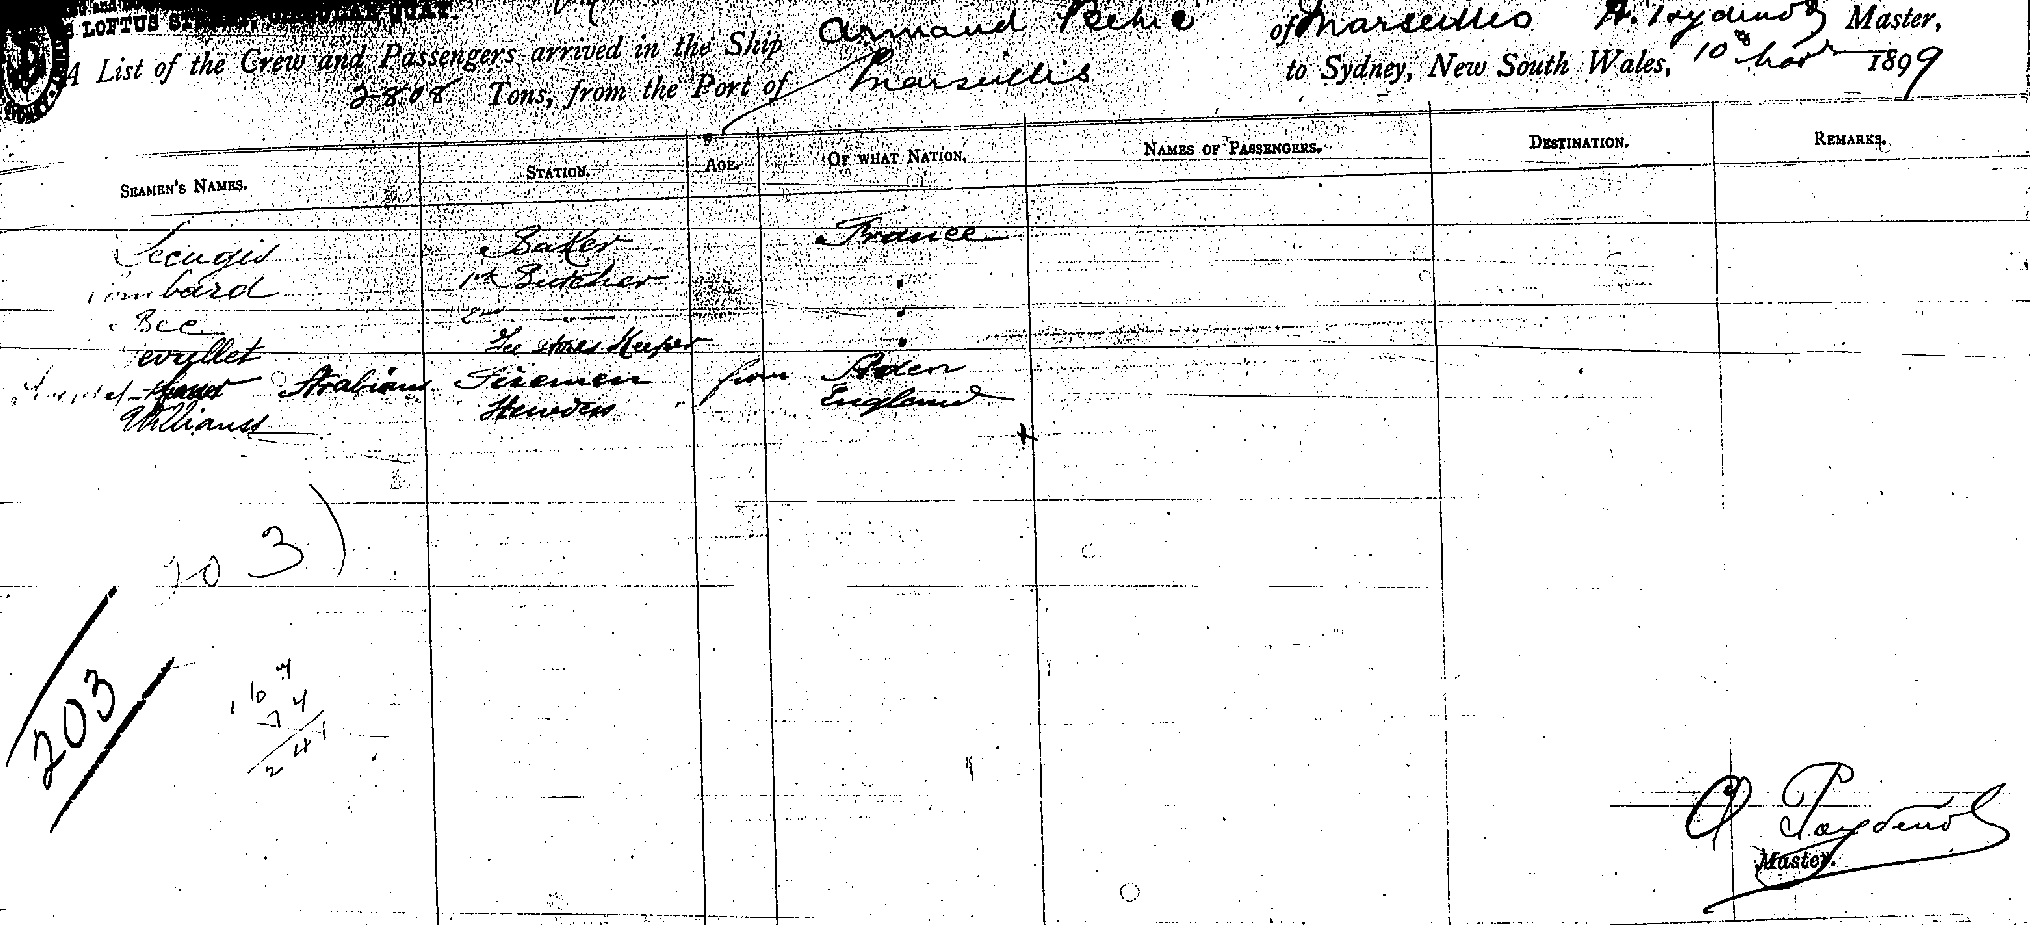 LOFTUS ST
A List of the Crew and Passengers arrived in the Ship Armand Behic of Marseilles A. Poydenot Master,
2808 Tons, from the Port of Marseilles to Sydney, New South Wales, 10th Nov 1899
SEAMEN'S NAMES. STATION. AGE. OF WHAT NATION. NAMES OF PASSENGERS. DESTINATION. REMARKS.
Baker France
bard 1st Butcher "
Bec 2nd — "
Keeper "
Arabians Firemen from Aden
Williams England
203)
203
167
74
241
Poydenot
Master.